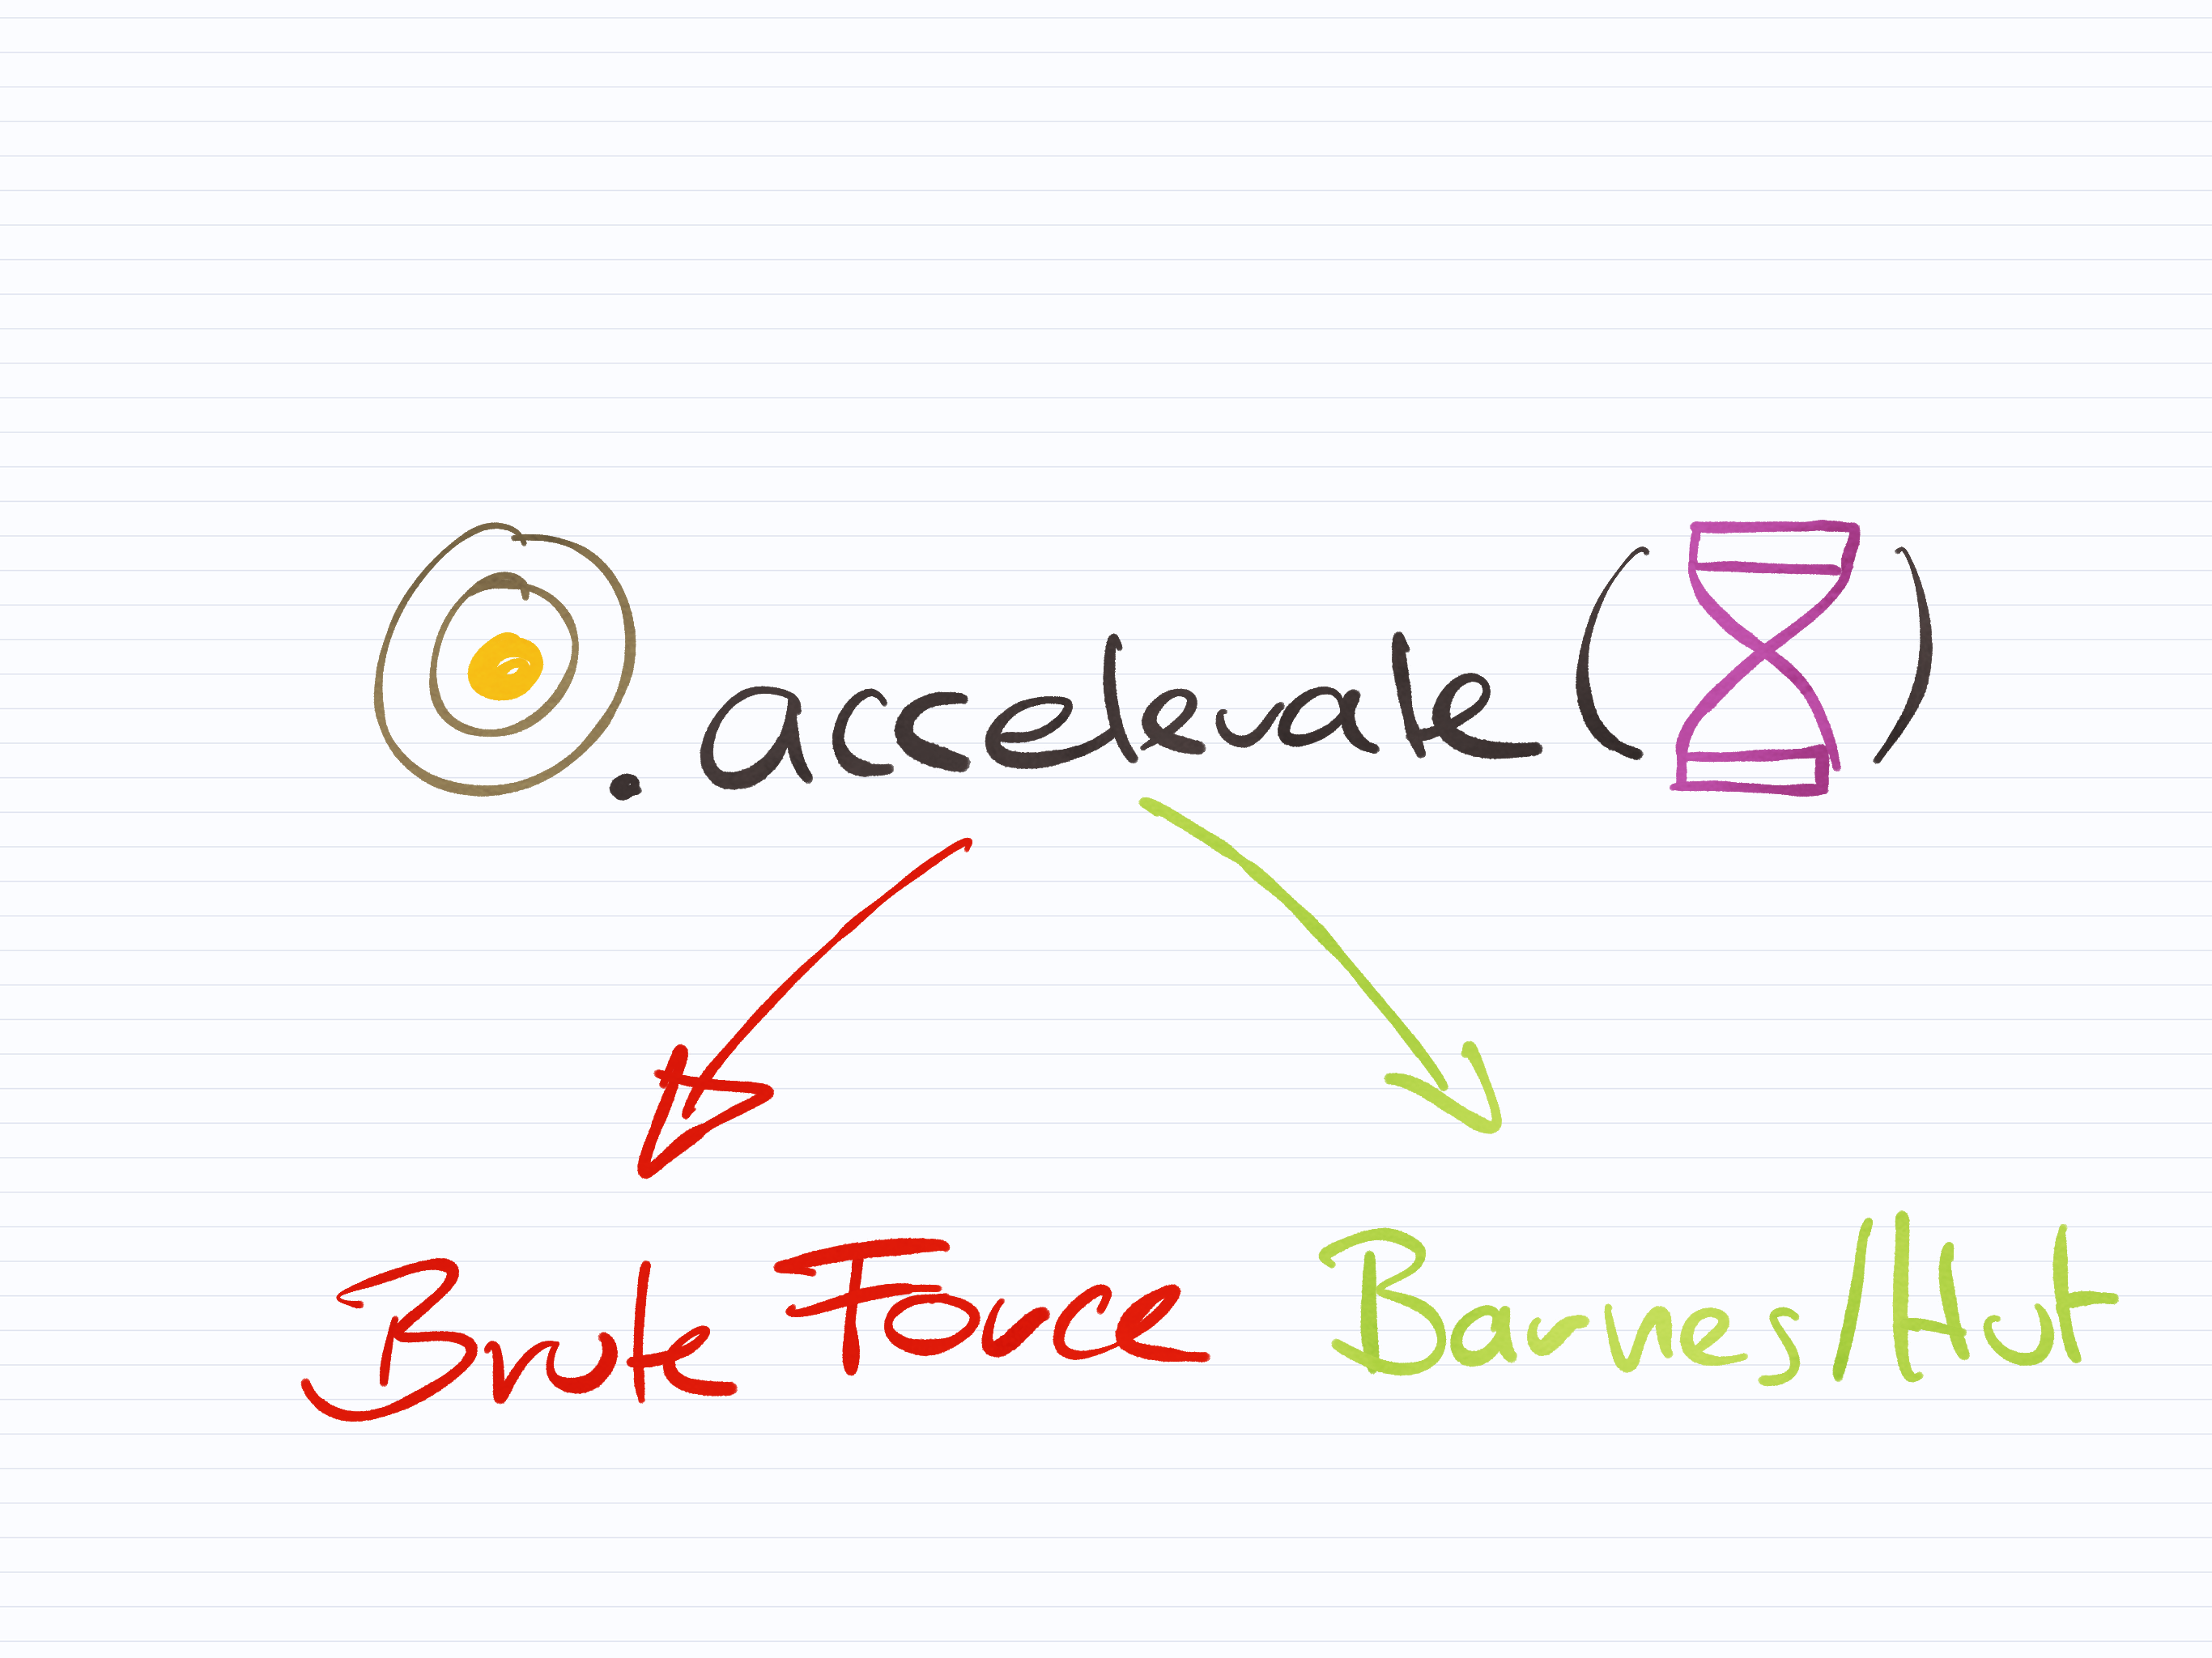 .accelerate( )
Brute Force Barnes/Hut